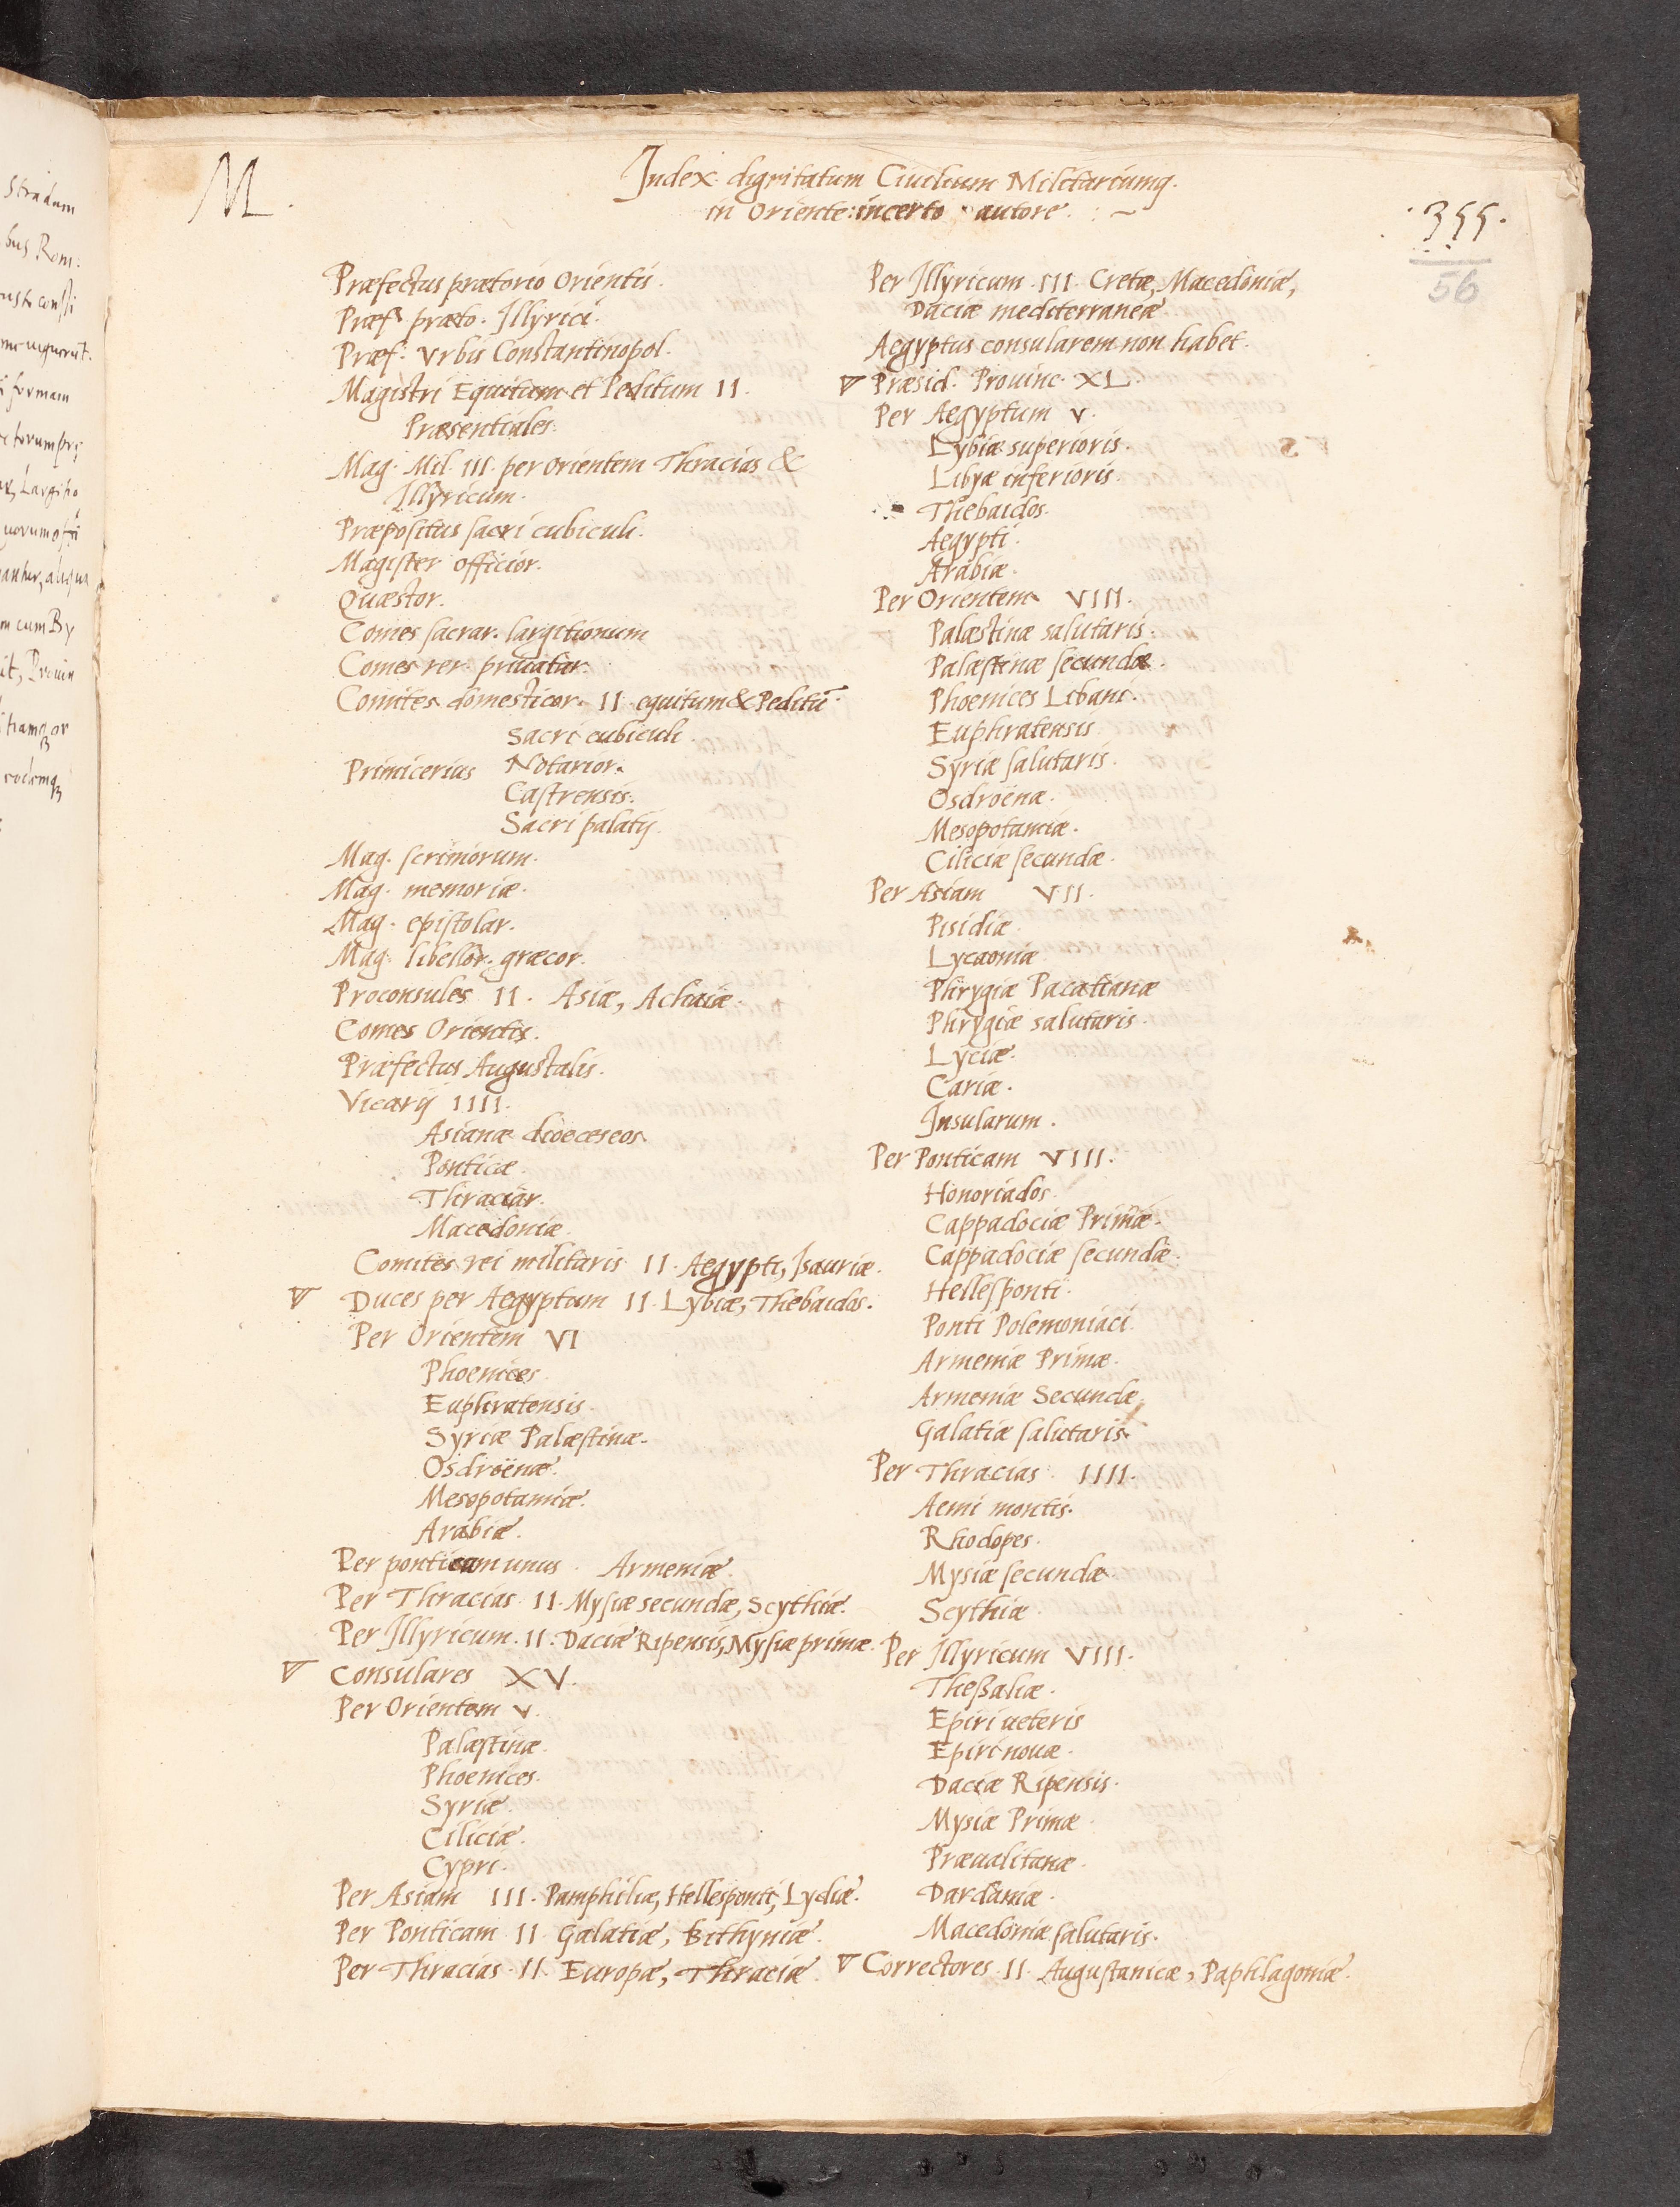 M.
Index dignitatum Ciuilium Militariumq.
in Oriente: incerto autore. : ~
.355.
56
Præfectus prætorio Orientis.
Præf. præto. Illyrici.
Præf. Vrbis Constantinopol.
Magistri Equitum et Peditum II.
Præsentiales.
Mag. Mil. III. per Orientem Thracias &
Illyricum.
Præpositus sacri cubiculi.
Magister officior.
Quæstor.
Comes sacrar. largitionum
Comes rer. priuatar.
Comites domesticor. II. equitum & Peditū.
Sacri cubiculi
Primicerius Notarior.
Castrensis.
Sacri palatij.
Mag. scriniorum.
Mag. memoriæ.
Mag. epistolar.
Mag. libellor. græcor.
Proconsules II. Asiæ, Achaiæ.
Comes Orientis.
Præfectus Augustalis.
Vicarij IIII.
Asianæ dioeceseos
Ponticæ.
Thraciar.
Macedoniæ.
Comites rei militaris II. Aegypti, Isauriæ.
∇ Duces per Aegyptum II. Lybiæ, Thebaidos.
Per Orientem VI
Phoenices.
Euphratensis.
Syriæ Palæstinæ.
Osdroënæ.
Mesopotamiæ.
Arabiæ.
Per ponticam unus. Armeniæ.
Per Thracias. II. Mysiæ secundæ, Scythiæ.
Per Illyricum. II. Daciæ Ripensis, Mysiæ primæ.
∇ Consulares XV.
Per Orientem V.
Palæstinæ.
Phoenices.
Syriæ.
Ciliciæ.
Cypri.
Per Asiam III. Pamphiliæ, Hellesponti, Lydiæ.
Per Ponticam II. Galatiæ, Bithyniæ.
Per Thracias. II. Europæ, Thraciæ.
Per Illyricum. III. Cretæ, Macedoniæ,
Daciæ mediterraneæ.
Aegyptus consularem non habet.
∇ Præsid. Prouinc. XL.
Per Aegyptum V.
Lybiæ superioris.
Libyæ inferioris.
Thebaidos.
Aegypti.
Arabiæ.
Per Orientem VIII.
Palæstinæ salutaris.
Palæstinæ secundæ.
Phoenices Libani.
Euphratensis
Syriæ salutaris.
Osdroënæ.
Mesopotamiæ.
Ciliciæ secundæ.
Per Asiam VII.
Pisidiæ.
Lycaoniæ.
Phrygiæ Pacatianæ
Phrygiæ salutaris.
Lyciæ.
Cariæ.
Insularum.
Per Ponticam VIII.
Honoriados.
Cappadociæ Primæ.
Cappadociæ secundæ.
Hellesponti.
Ponti Polemoniaci.
Armeniæ Primæ.
Armeniæ Secundæ.
Galatiæ salutaris.
Per Thracias IIII.
Aemi montis.
Rhodopes.
Mysiæ secundæ.
Scythiæ.
Per Illyricum VIII.
Theßaliæ.
Epiri ueteris
Epiri nouæ.
Daciæ Ripensis.
Mysiæ Primæ.
Præualitanæ.
Dardaniæ.
Macedoniæ salutaris.
∇ Correctores. II. Augustanicæ, Paphlagoniæ.